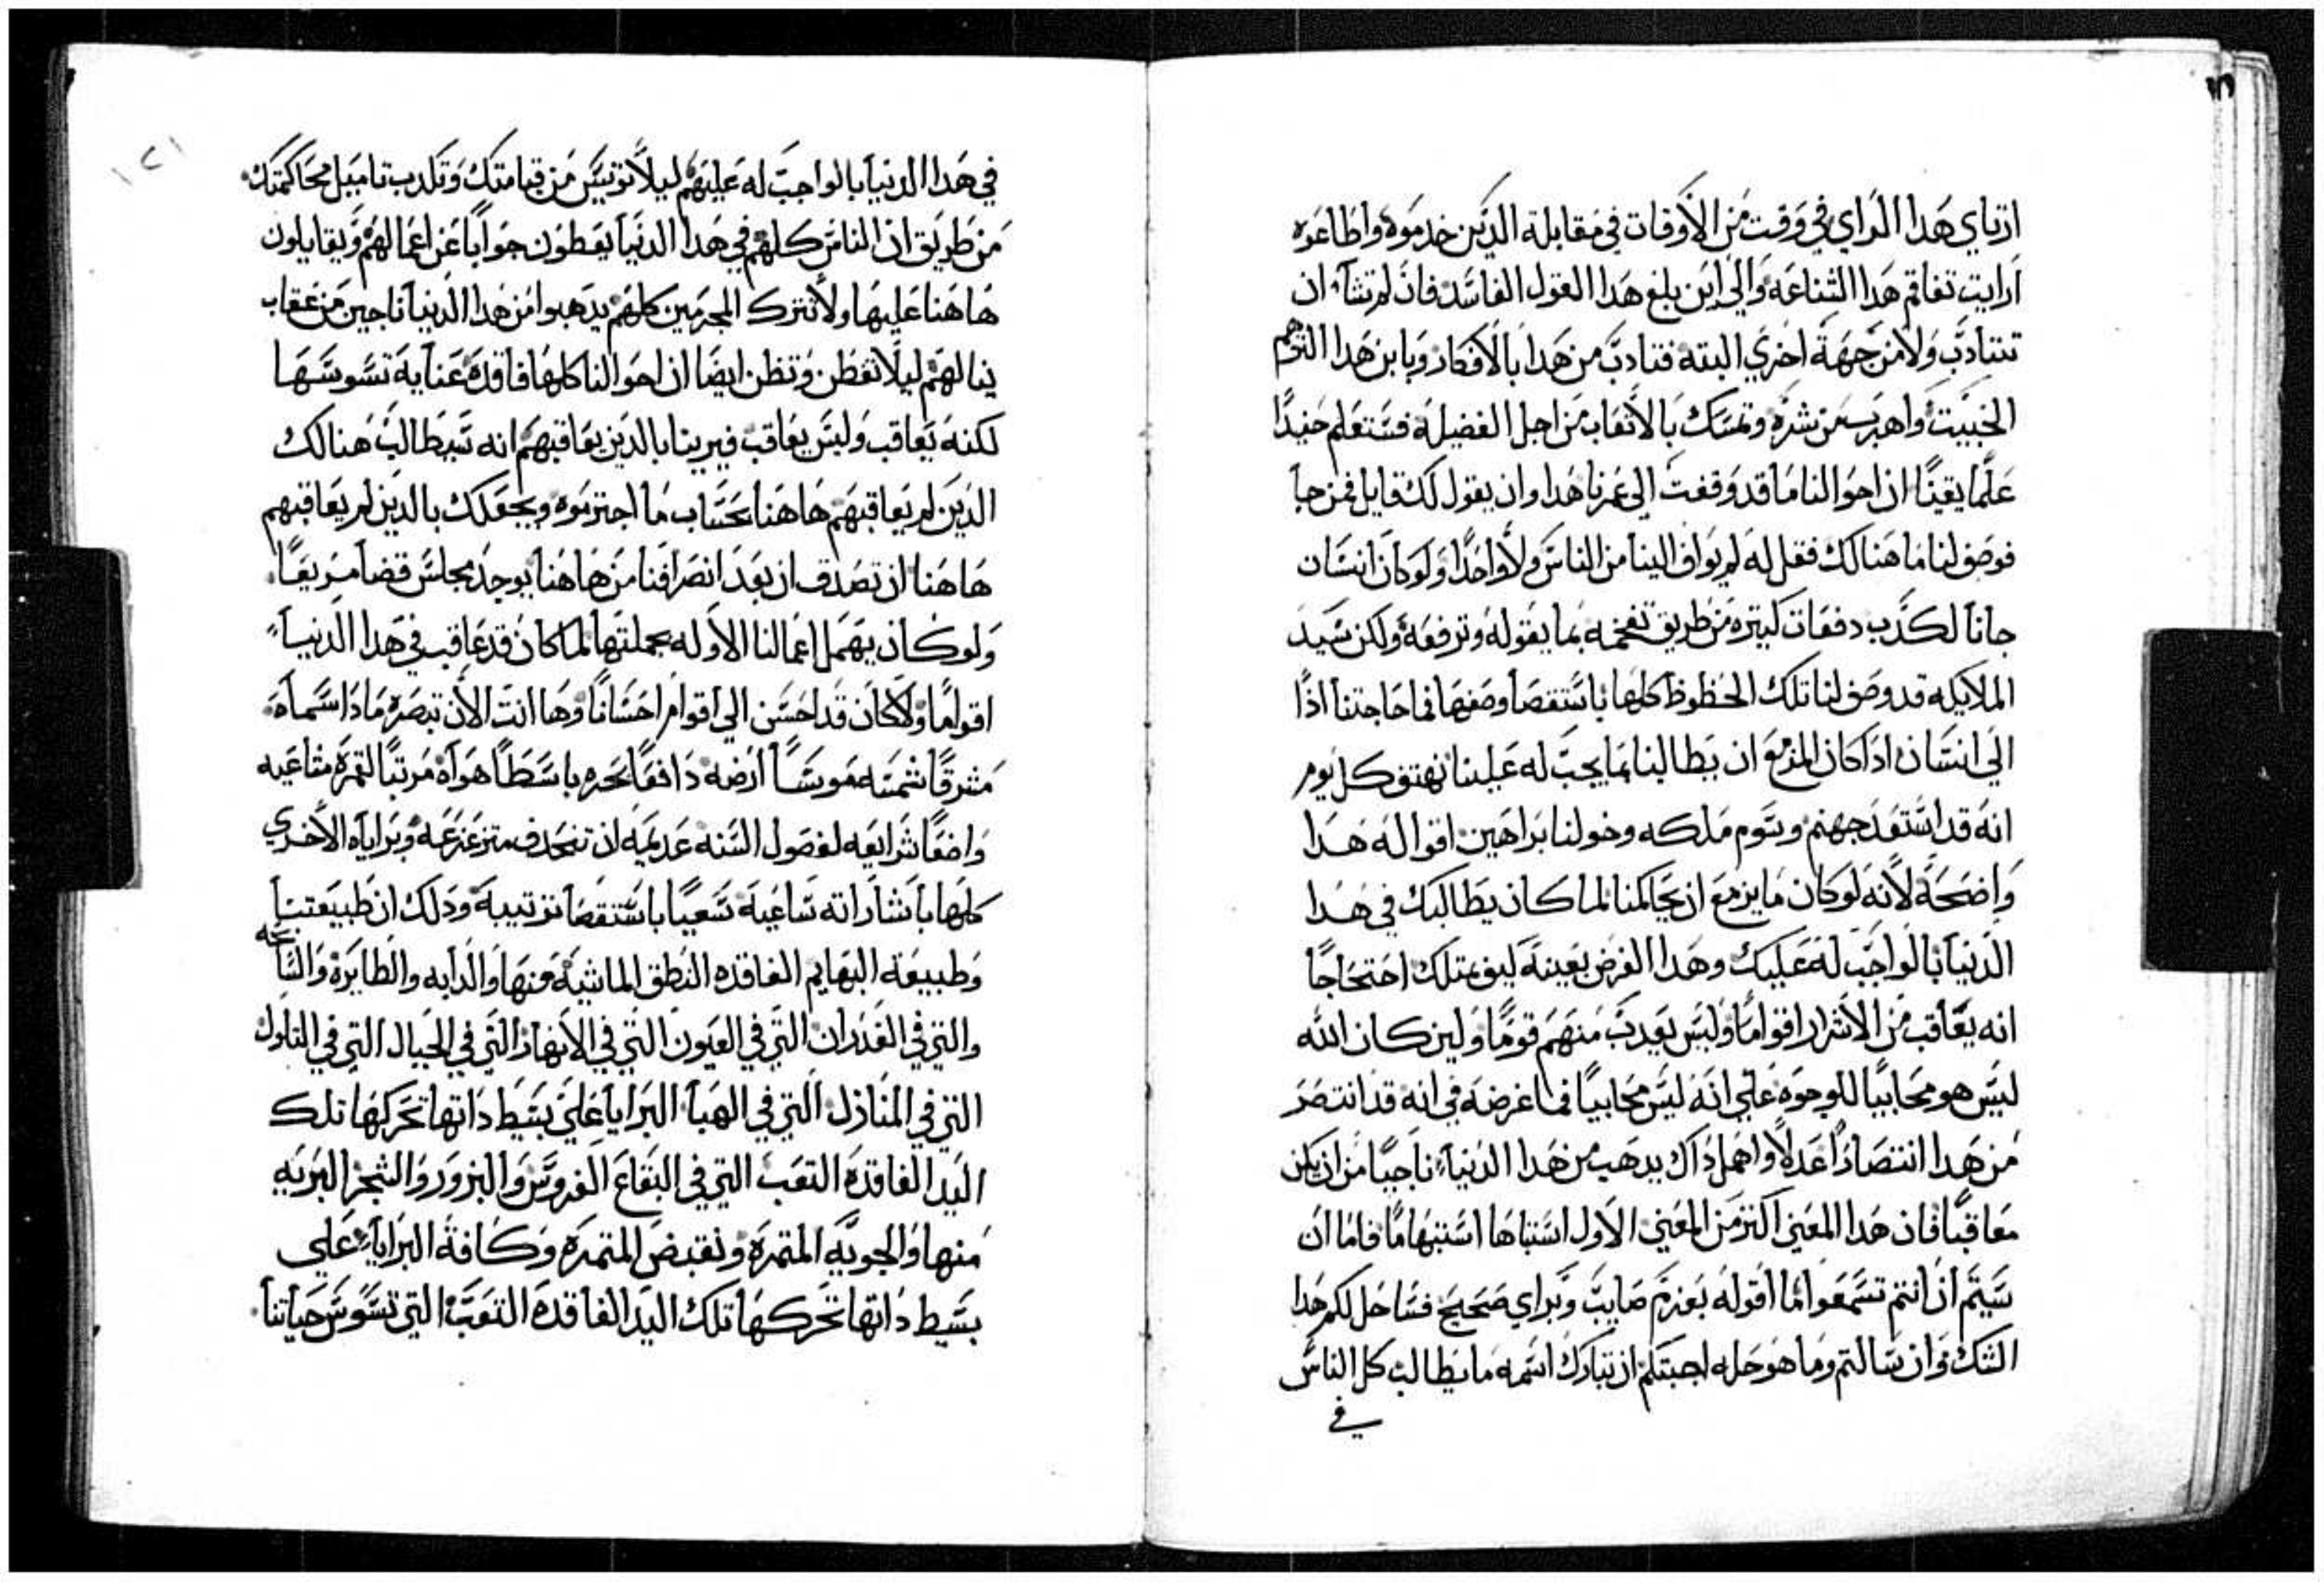 ارتاي هدا الراي في وقت من الاوقات في مقابلة الدين خدموه واطاعوه
ارايت تفاقم هدا الشناعه والي اين بلغ هدا القول الفاسد فان لم تشاء ان
تتادب ولا من جهة اخري البته فتادب من هدا بالافكار وباين هدا التوهم
الخبيت واهرب من شره وتمسك بالاتعاب من اجل الفضيله فستعلم حنيدًا
علمًا يقينًا ان احوالنا ما قد وقفت الي عمرنا هدا وان يقول لك قايل فمن جا
فوصف لنا ما هنالك فقل له لم يواف الينا من الناس ولا واحدًا ولو كان انسان
جانا لكدب دفعات كتيره من طريق تفخمه بما يقوله وترفعه ولكن سيد
الملايكه قد وصف لنا تلك الحظوظ كلها باستقصا وصفها فما حاجتنا ادًا
الي انسان ادا كان المزمع ان يطالبنا بما يجب له علينا يهتف كل يوم
انه قد استعد جهنم ويسوم ملكه وخولنا براهين اقواله هدا
واضحة لانه لو كان ما يزمع ان يحاكمنا لما كان يطالبك في هدا
الدنيا بالواجب له عليك وهدا الغرض بعينة ليق بتلك احتجاجًا
انه يعاقب من الاشرار اقوامًا وليس يعدب منهم قومًا ولين كان الله
ليس هو محابيًا للوجوه علي انه ليس محابيًا فما غرضه في انه قد انتصر
من هدا انتصارًا عدلًا واهمل داك يدهب من هدا الدنيا ناجيًا من ان يكن
معاقبًا فان هدا المعني اكتر من المعني الاول استباها استبهامًا فاما ان
سيتم ان انتم تسمعوا لما اقوله بعزم صايب وبراي صحيح فساحل لكم هدا
الشك وان سالتم وما هو حله اجبتكم ان تبارك اسمه ما يطالب كل الناس
في
١٢١
في هدا الدنيا بالواجب له عليهم ليلا توتيس من قيامتك وتكدب تاميل محاكمتك
من طريق ان الناس كلهم في هدا الدنيا يعطون جوابًا عن اعمالهم ويقابلون
هاهنا عليها ولا تترك المجرمين كلهم يدهبوا من هدا الدنيا ناجين من عقاب
ينالهم ليلا تفطن وتظن ايضا ان احوالنا كلها فاقدة عناية تسوسها
لكنه يعاقب وليس يعاقب فيرينا بالدين يعاقبهم انه سيطالب هنالك
الدين لم يعاقبهم هاهنا بحساب ما اجترموه ويجعلك بالدين لم يعاقبهم
هاهنا ان تصدق ان بعد انصرافنا من هاهنا يوجد مجلس قضا مريعًا
ولو كان يهمل اعمالنا الاوله بجملتها لما كان قد عاقب في هدا الدنيا
اقوامًا ولا كان قد احسن الي اقوام احسانًا وها انت الان تبصره مادا سماه
مشرقًا شمسه موسسًا ارضه دافعًا بحره باسطًا هواه مرتبًا لقمره مساعيه
واضعًا شرايعه لفصول السنه عديمه ان تنحدف متزعزعه وبراياه الاخري
كلها باشاراته ساعية سعيًا باستقصا ترتيبه ودلك ان طبيعتنا
وطبيعة البهايم الفاقده النطق الماشية منها والدابه والطايره والسابحه
والتي في الغدران التي في العيون التي في الانهار التي في الجبال التي في التلول
التي في المنازل التي في الهبا البرايا علي بسيط داتها تحركها تلك
اليد الفاقده التعب التي في البقاع الغروس والبزور والشجر البريه
منها والجويه المتمره ونقيض المتمره وكافة البرايا علي
بسيط داتها تحركها تلك اليد الفاقدة التعب التي تسوس حياتنا